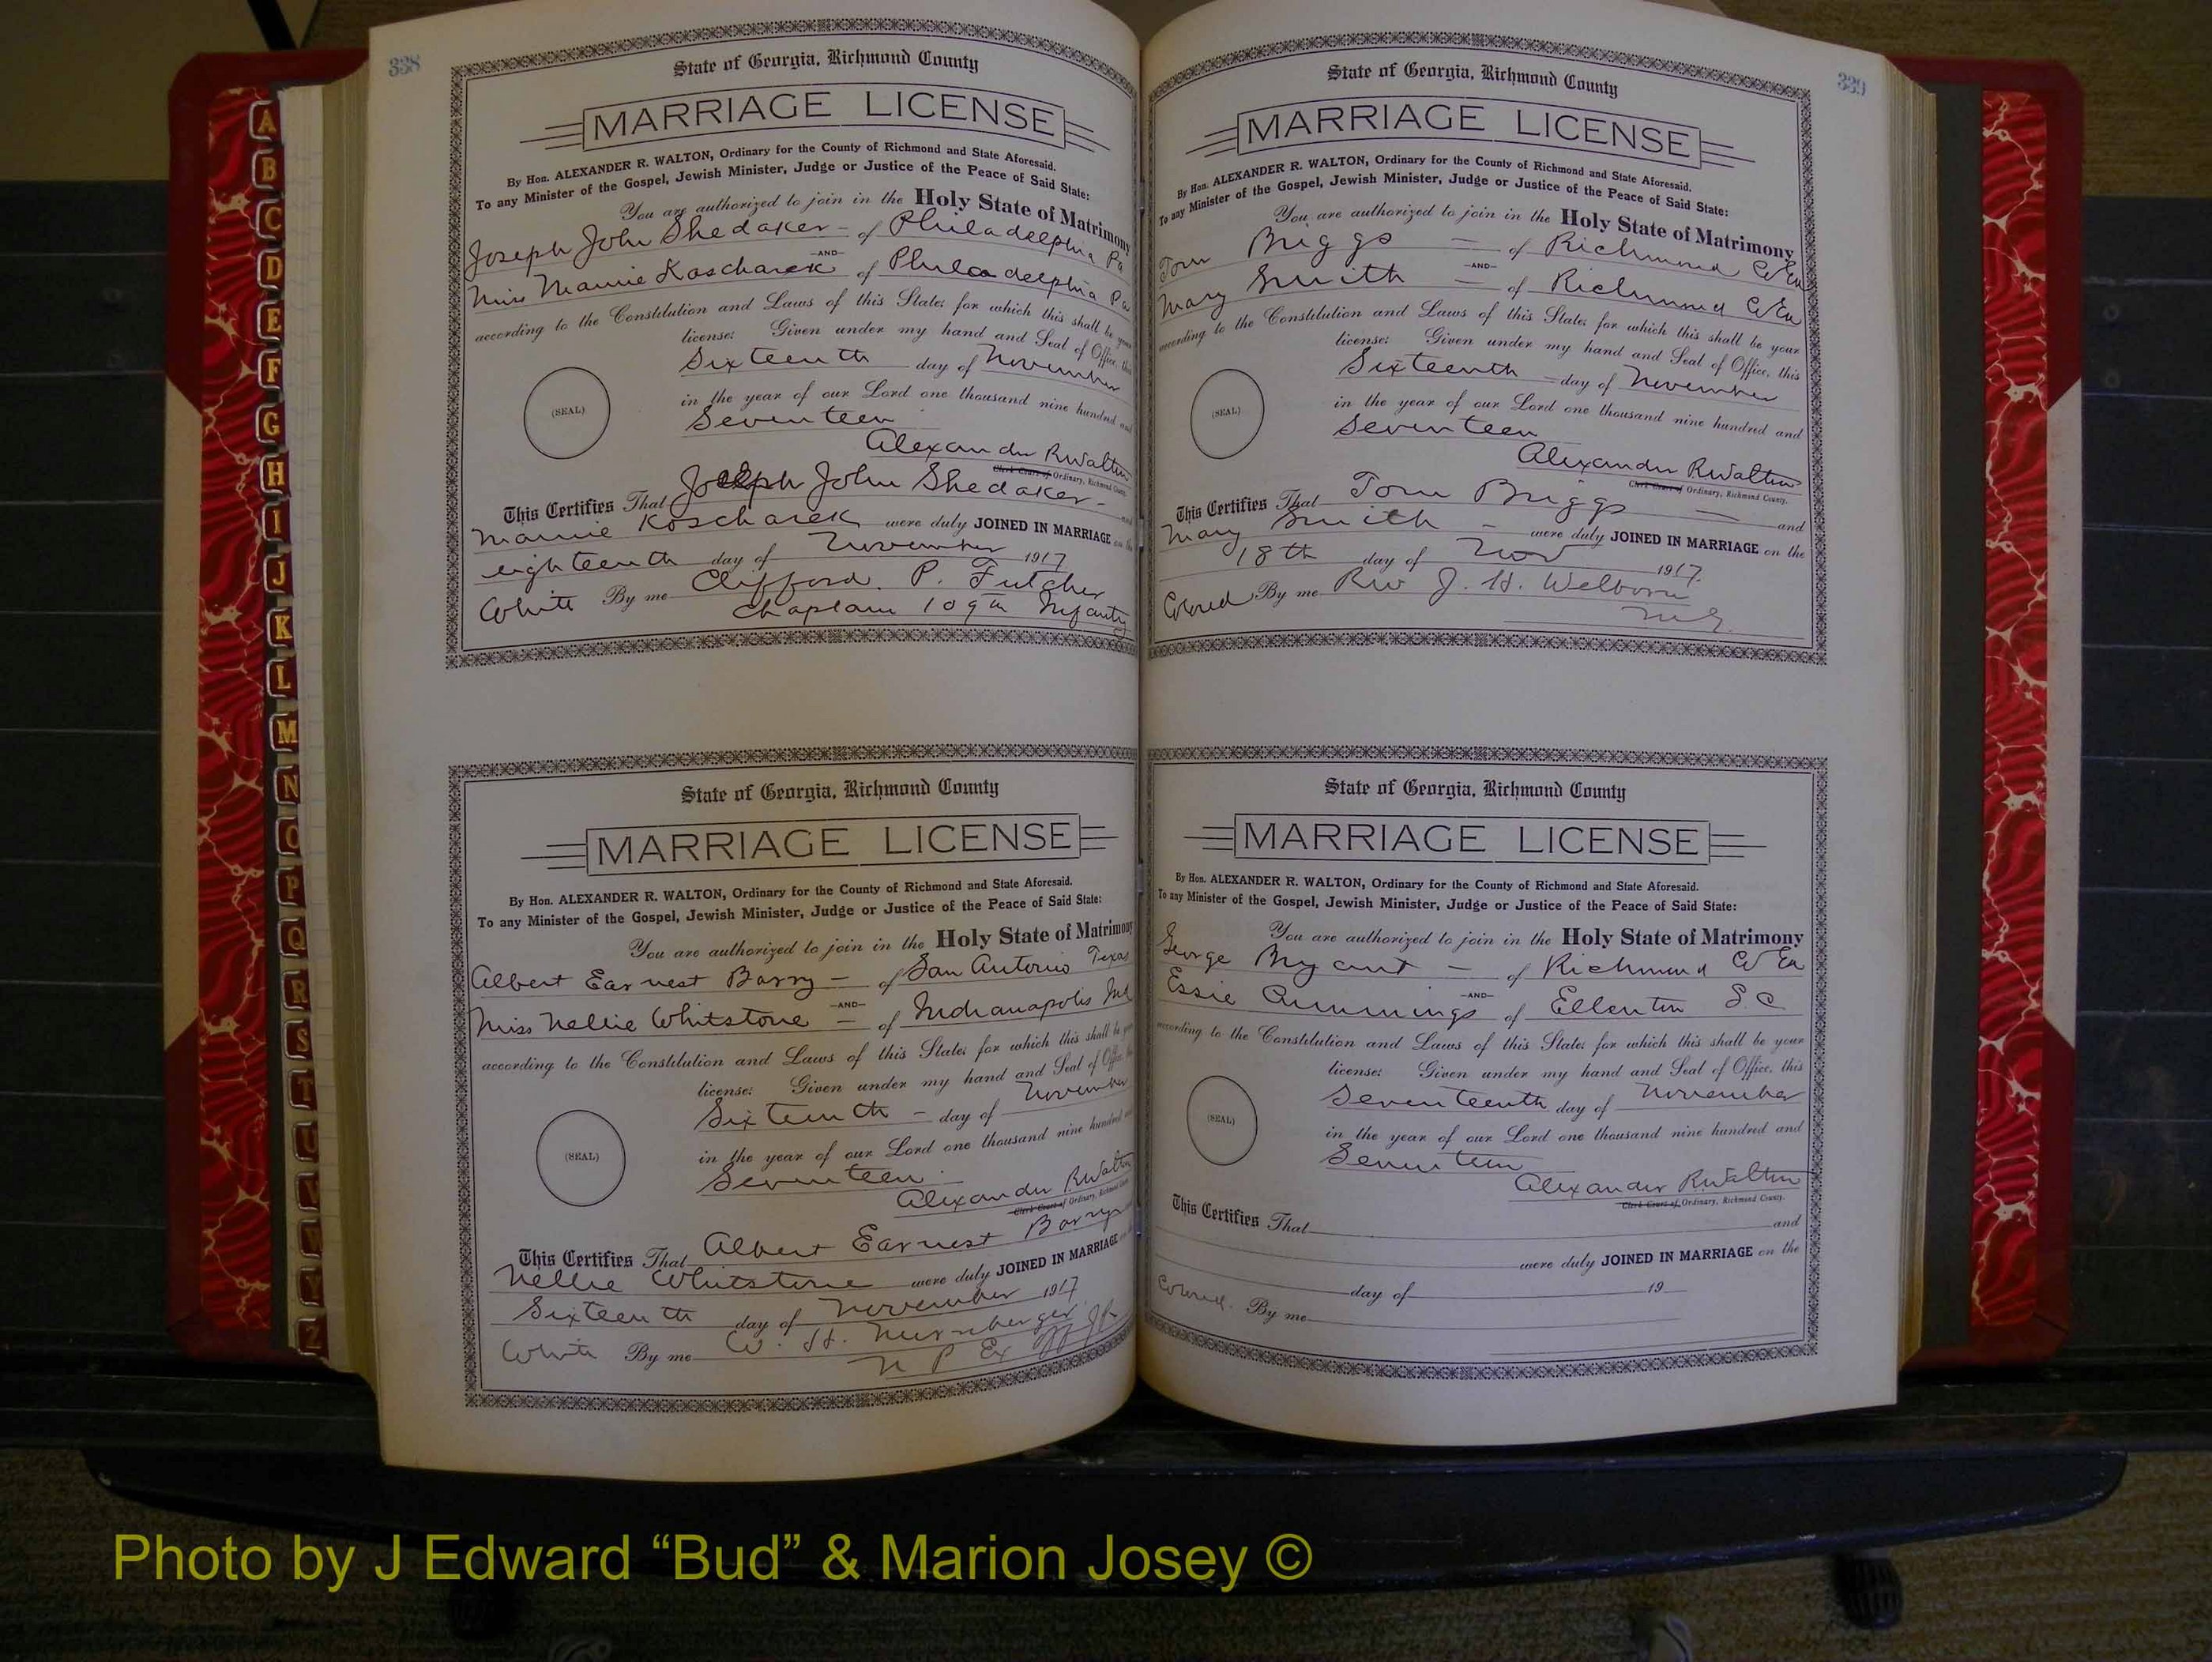 338
State of Georgia, Richmond County
MARRIAGE LICENSE
By Hon. ALEXANDER R. WALTON, Ordinary for the County of Richmond and State Aforesaid.
To any Minister of the Gospel, Jewish Minister, Judge or Justice of the Peace of Said State:
You are authorized to join in the Holy State of Matrimony
Joseph John Shedaker - of Philadelphia Pa
AND
Miss Mamie Koscharek of Philadelphia Pa
according to the Constitution and Laws of this State; for which this shall be your
license: Given under my hand and Seal of Office, this
Sixteenth day of November
(SEAL)
in the year of our Lord one thousand nine hundred and
Seventeen
Alexander R Walton
Clerk Court of Ordinary, Richmond County.
This Certifies That Joseph John Shedaker - and
Mamie Koscharek were duly JOINED IN MARRIAGE on the
eighteenth day of November 1917
White By me Clifford P. Futcher
Chaplain 109th Infantry
State of Georgia, Richmond County
MARRIAGE LICENSE
By Hon. ALEXANDER R. WALTON, Ordinary for the County of Richmond and State Aforesaid.
To any Minister of the Gospel, Jewish Minister, Judge or Justice of the Peace of Said State:
You are authorized to join in the Holy State of Matrimony
Albert Earnest Barry - of San Antonio Texas
AND
Miss Nellie Whitstone - of Indianapolis Ind
according to the Constitution and Laws of this State; for which this shall be your
license: Given under my hand and Seal of Office, this
Sixteenth - day of November
(SEAL)
in the year of our Lord one thousand nine hundred and
Seventeen
Alexander R Walton
Clerk Court of Ordinary, Richmond County.
This Certifies That Albert Earnest Barry
Nellie Whitstone were duly JOINED IN MARRIAGE on the
Sixteenth day of November 1917
White By me W. H. Nurnberger
N P Ex Off J P
339
State of Georgia, Richmond County
MARRIAGE LICENSE
By Hon. ALEXANDER R. WALTON, Ordinary for the County of Richmond and State Aforesaid.
To any Minister of the Gospel, Jewish Minister, Judge or Justice of the Peace of Said State:
You are authorized to join in the Holy State of Matrimony
Tom Briggs - of Richmond Co Ga
AND
Mary Smith - of Richmond Co Ga
according to the Constitution and Laws of this State; for which this shall be your
license: Given under my hand and Seal of Office, this
Sixteenth - day of November
(SEAL)
in the year of our Lord one thousand nine hundred and
Seventeen
Alexander R Walton
Clerk Court of Ordinary, Richmond County.
This Certifies That Tom Briggs - and
Mary Smith - were duly JOINED IN MARRIAGE on the
18th day of Nov 1917.
Colored By me Rev J. H. Welborn
M.G.
State of Georgia, Richmond County
MARRIAGE LICENSE
By Hon. ALEXANDER R. WALTON, Ordinary for the County of Richmond and State Aforesaid.
To any Minister of the Gospel, Jewish Minister, Judge or Justice of the Peace of Said State:
You are authorized to join in the Holy State of Matrimony
George Bryant - of Richmond Co Ga
AND
Essie Cummings of Ellenton S.C
according to the Constitution and Laws of this State; for which this shall be your
license: Given under my hand and Seal of Office, this
Seventeenth day of November
(SEAL)
in the year of our Lord one thousand nine hundred and
Seventeen
Alexander R Walton
Clerk Court of Ordinary, Richmond County.
This Certifies That and
were duly JOINED IN MARRIAGE on the
day of 19
Colored. By me
A
B
C
D
E
F
G
H
I
J
K
L
M
N
O
P
Q
R
S
T
U
V
W
Y
Z
Photo by J Edward “Bud” & Marion Josey ©